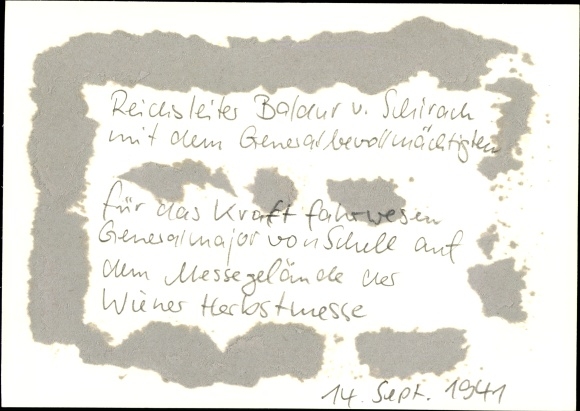 Reichsleiter Baldur v. Schirach
mit dem Generalbevollmächtigten
für das Kraftfahrwesen
Generalmajor von Schell auf
dem Messegelände der
Wiener Herbstmesse
14. Sept. 1941